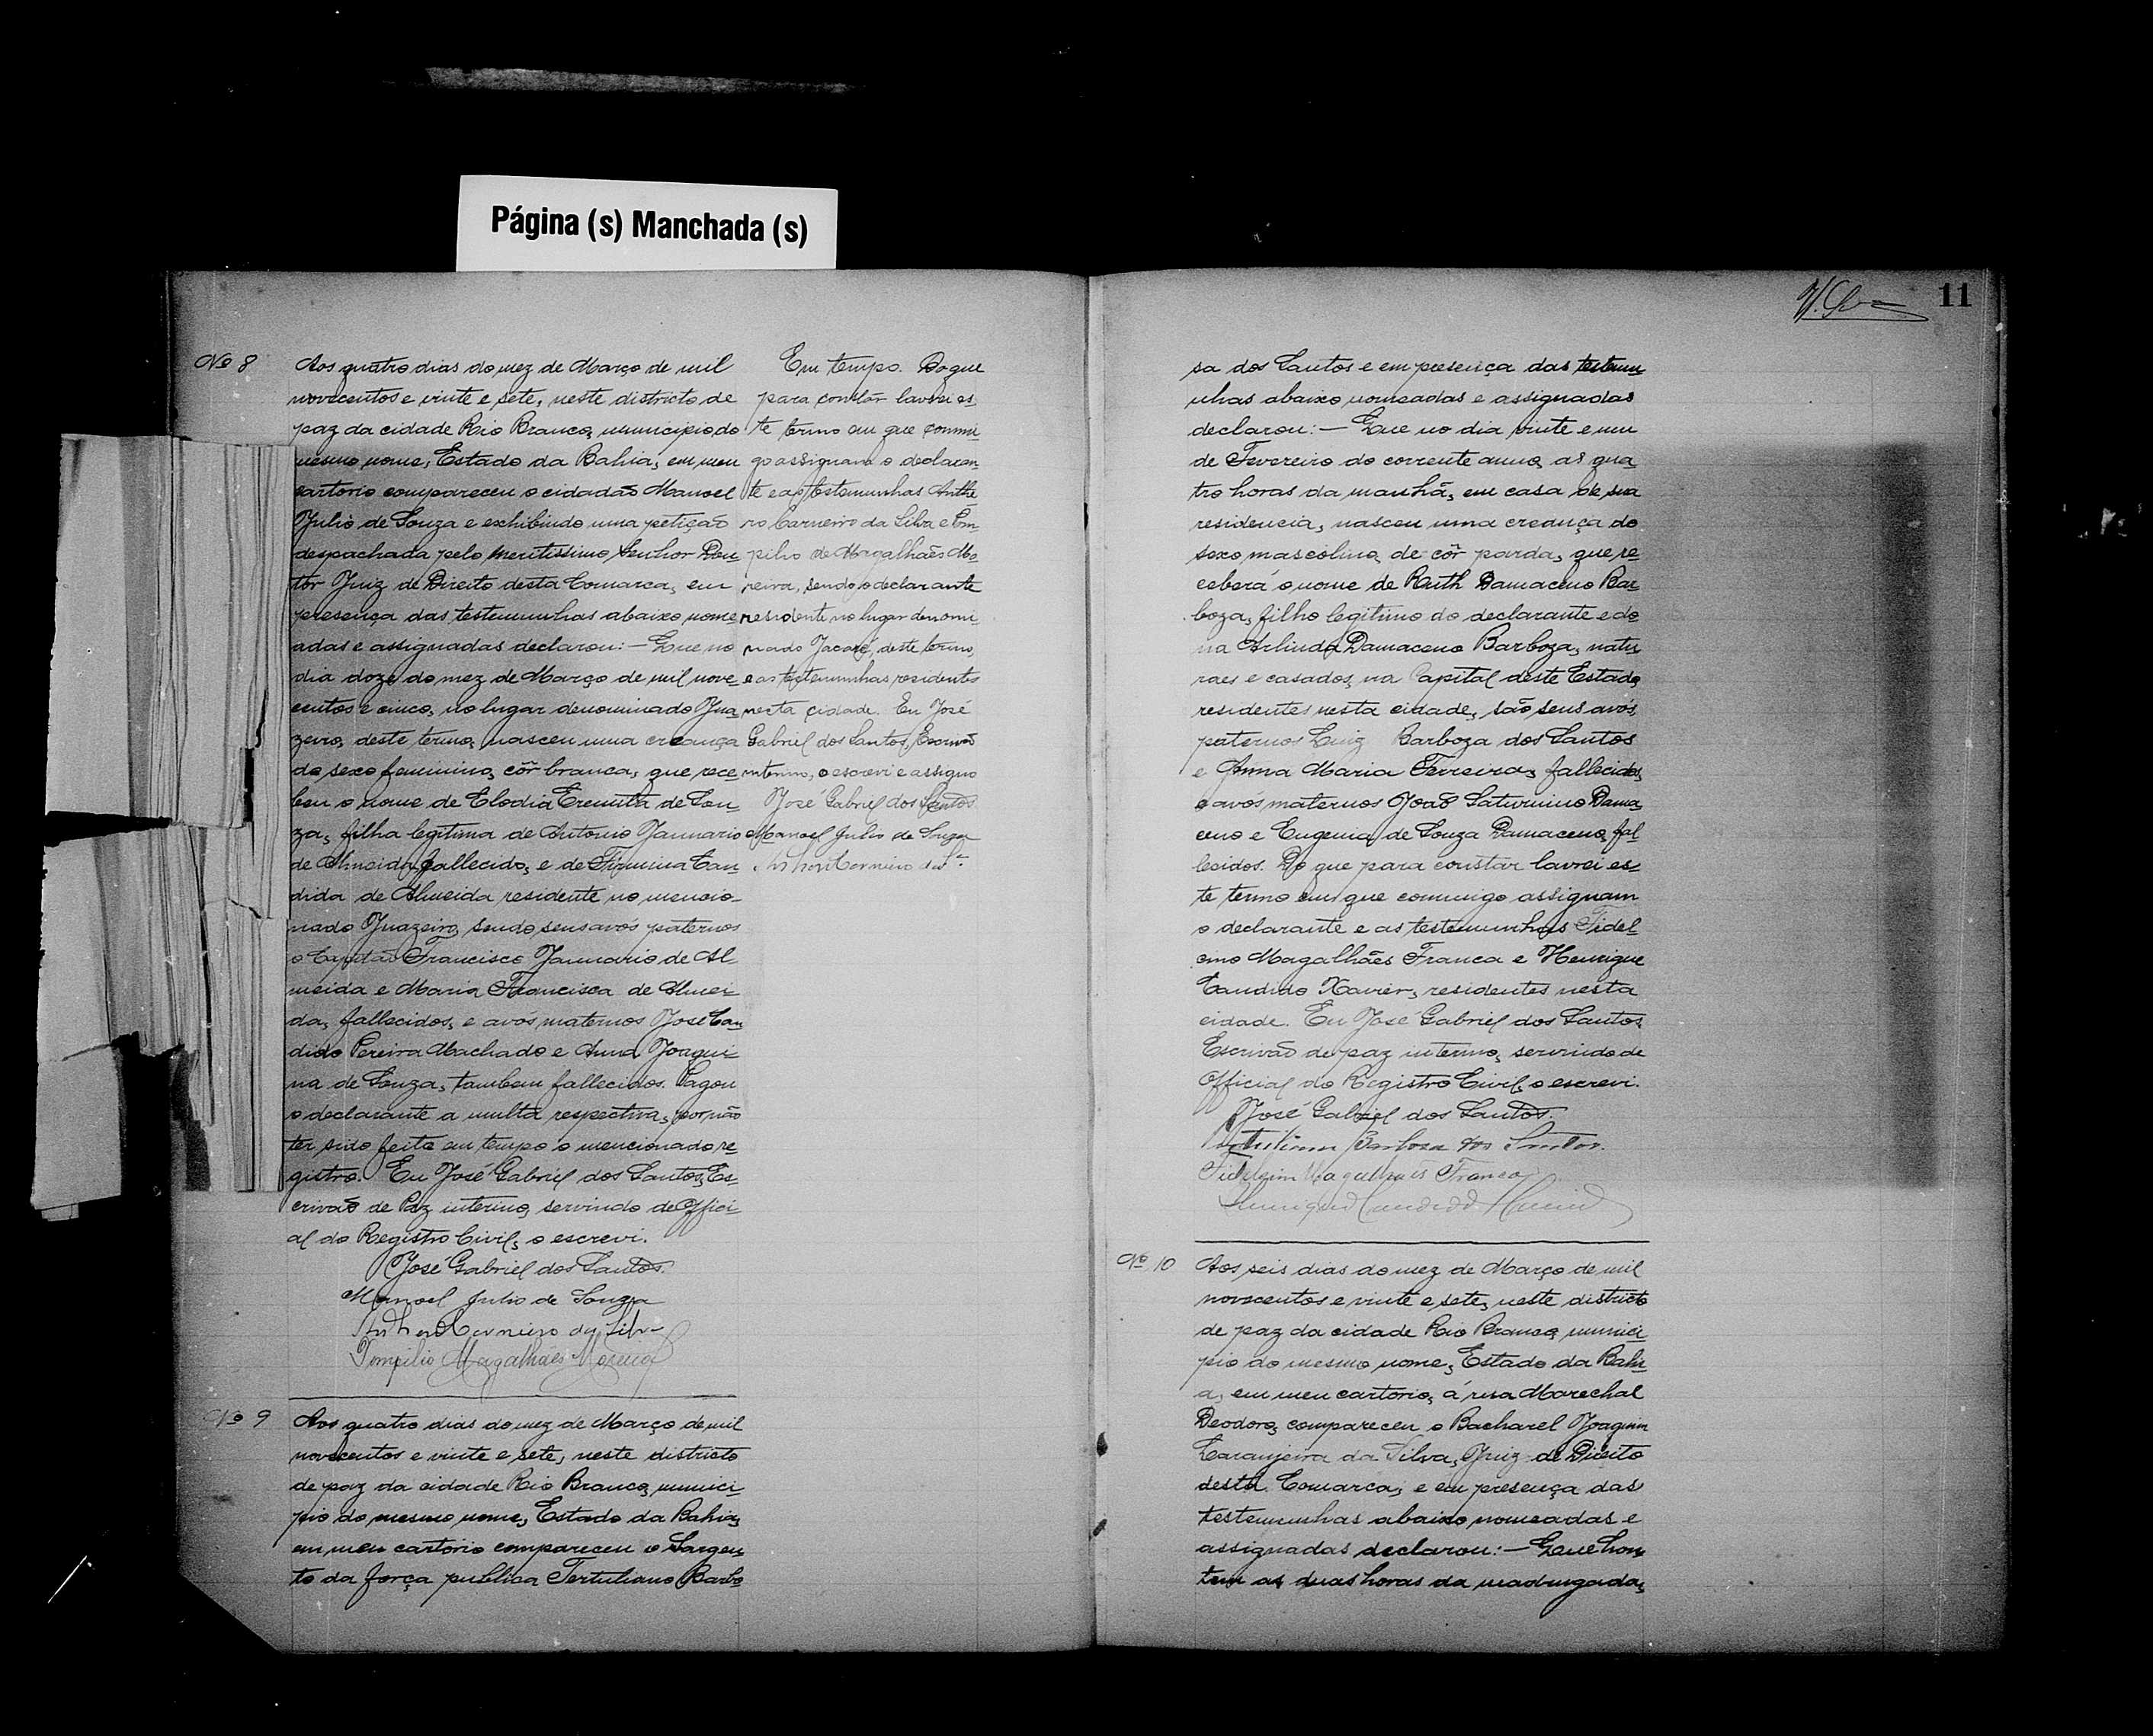 Página (s) Manchada (s)
11
Nº 8
Aos quatro dias do mez de Março de mil
novecentos e vinte e sete, neste districto de
paz da cidade Rio Branco, municipio do
mesmo nome, Estado da Bahia, em meu
cartorio compareceu o cidadão Manoel
Julio de Souza e exhibindo uma petição
despachada pelo Meritissimo Senhor Dou-
tor Juiz de Direito desta Comarca, em
presença das testemunhas abaixo nome-
adas e assignadas declarou: — Que no
dia doze do mez de Março de mil nove-
centos e cinco, no lugar denominado Jua-
zeiro, deste termo, nasceu uma creança
do sexo feminino, côr branca, que rece-
beu o nome de Elodia Eremita de Sou-
za, filha legitima de Antonio Januario
de Almeida, fallecido, e de Firmina Can-
dida de Almeida residente no mencio-
nado Juazeiro, sendo seus avós paternos
o Capitão Francisco Januario de Al-
meida e Maria Francisca de Almei-
da, fallecidos, e avós maternos José Can-
dido Pereira Machado e Anna Joaqui-
na de Souza, tambem fallecidos. Pagou
o declarante a multa respectiva, por não
ter sido feito em tempo o mencionado re-
gistro. Eu José Gabriel dos Santos, Es-
crivão de Paz interino, servindo de Offici-
al do Registro Civil, o escrevi.
José Gabriel dos Santos.
Manoel Julio de Souza
Carneiro da Silva
Pompilio Magalhães Moreira
Em tempo. Do que
para constar lavrei es-
te termo em que commi-
go assignam o declaran-
te e as testemunhas Anthe-
ro Carneiro da Silva e Pom-
pilio de Magalhães Mo-
reira, sendo o declarante
residente no lugar denomi-
nado Jacaré, deste termo,
e as testemunhas residentes
nesta cidade. Eu José
Gabriel dos Santos, Escrivão
interino, o escrevi e assigno
José Gabriel dos Santos
Manoel Julio de Souza
Carneiro
Nº 9
Aos quatro dias do mez de Março de mil
novecentos e vinte e sete, neste districto
de paz da cidade Rio Branco, munici-
pio do mesmo nome, Estado da Bahia,
em meu cartorio compareceu o Sargen-
to da força publica Tertuliano Barbo-
sa dos Santos e em presença das testemu-
nhas abaixo nomeadas e assignadas
declarou: — Que no dia vinte e um
de Fevereiro do corrente anno, as qua-
tro horas da manhã, em casa de sua
residencia, nasceu uma creança do
sexo mascolino, de côr parda, que re-
ceberá o nome de Ruth Damaceno Bar-
boza, filho legitimo do declarante e do-
na Arlinda Damaceno Barboza, natu-
raes e casados, na Capital deste Estado,
residentes nesta cidade, são seus avós
paternos Luiz Barboza dos Santos
e Anna Maria Ferreira, fallecidos,
e avós maternos João Saturnino Dama-
ceno e Eugenia de Souza Damaceno, fal-
lecidos. Do que para constar lavrei es-
te termo em que commigo assignam
o declarante e as testemunhas Fidel-
cino Magalhães Franca e Henrique
Candido Xavier, residentes nesta
cidade. Eu José Gabriel dos Santos,
Escrivão de paz interino, servindo de
Official do Registro Civil, o escrevi.
José Gabriel dos Santos.
Tertuliano Barboza dos Santos.
Magalhães Franca
Henrique Candido Xavier
Nº 10
Aos seis dias do mez de Março de mil
novecentos e vinte e sete, neste districto
de paz da cidade Rio Branco, munici-
pio do mesmo nome, Estado da Bahi-
a, em meu cartorio, á rua Marechal
Deodoro, compareceu o Bacharel Joaquim
Laranjeira da Silva, Juiz de Direito
desta Comarca, e em presença das
testemunhas abaixo nomeadas e
assignadas declarou: — Que hon-
tem as duas horas da madrugada,